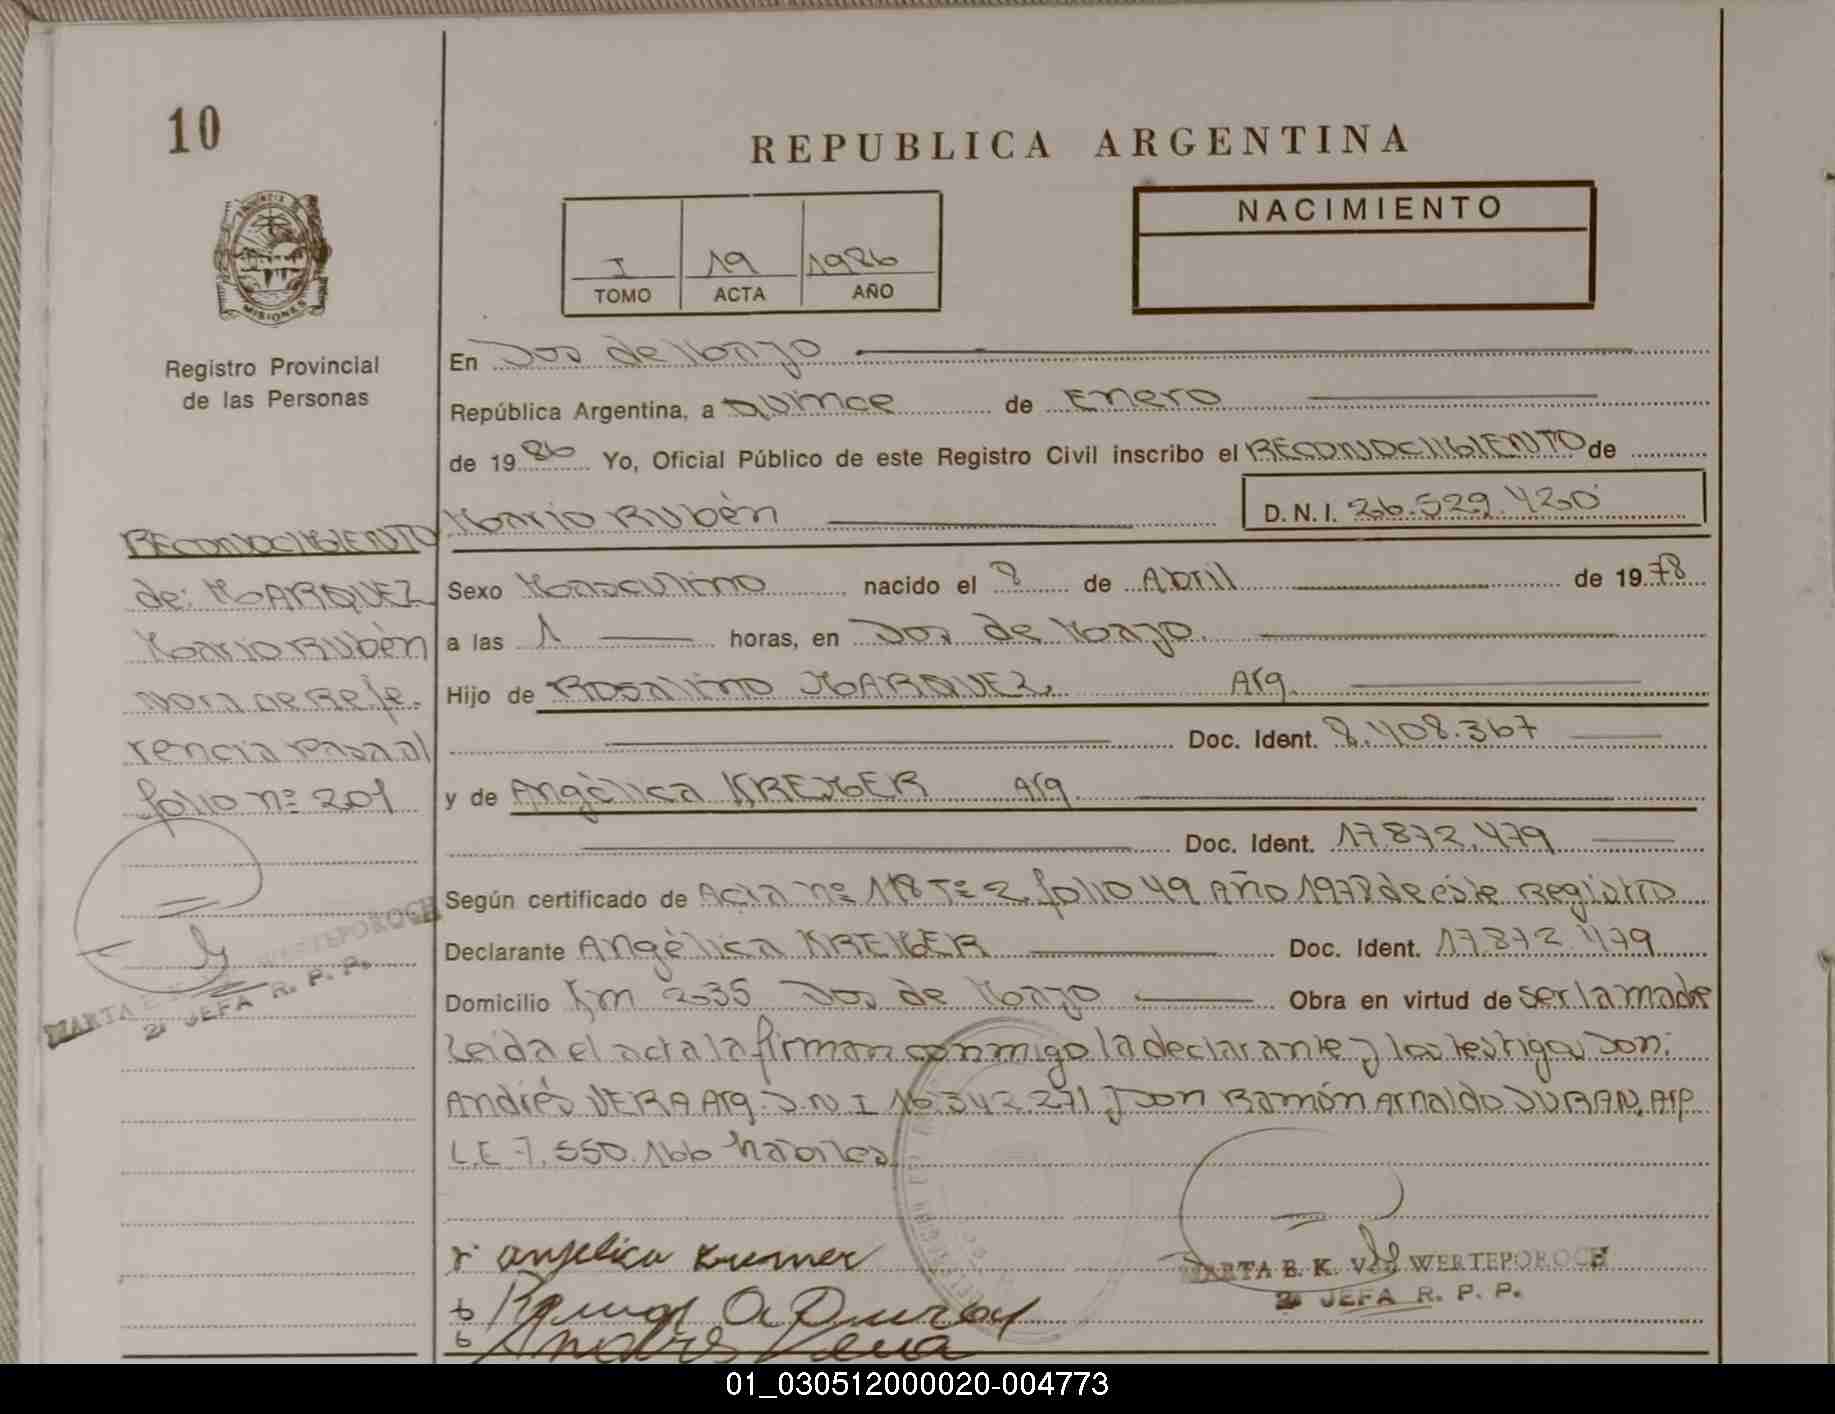 10
REPUBLICA ARGENTINA
NACIMIENTO
I 19 1986
TOMO ACTA AÑO
MISIONES
Registro Provincial
de las Personas
En Dos de Mayo
República Argentina, a Quince de Enero
de 1986 Yo, Oficial Público de este Registro Civil inscribo el RECONOCIMIENTO de
Mario Rubén D.N.I. 26.529.420
RECONOCIMIENTO
de: MARQUEZ
Mario Rubén
Nota de Refe.
rencia Pasa al
folio nº 201
Sexo Masculino nacido el 8 de Abril de 1978
a las 1 horas, en Dos de Mayo.
Hijo de Rosalino MARQUEZ, Arg.
Doc. Ident. 8.408.367
y de Angèlica KREMER Arg.
Doc. Ident. 17.872.479
Según certificado de Acta nº 118 Tº 2 folio 49 Año 1978 de éste Registro
Declarante Angèlica KREMER Doc. Ident. 17.872.479
Domicilio Km 235 Dos de Mayo Obra en virtud de ser la madre
Leida el acta la firman conmigo la declarante y los testigos Don:
Andrés VERA Arg. D.N.I 16.342.271 y Don Ramón Arnaldo DURAN, Arg
L.E 7.550.166 habiles
MARTA E. K. WERTEPOROCH
2ª JEFA R. P. P.
anjelica kremer
MARTA E. K. V WERTEPOROCH
2ª JEFA R. P. P.
Andres Vera
01_030512000020-004773